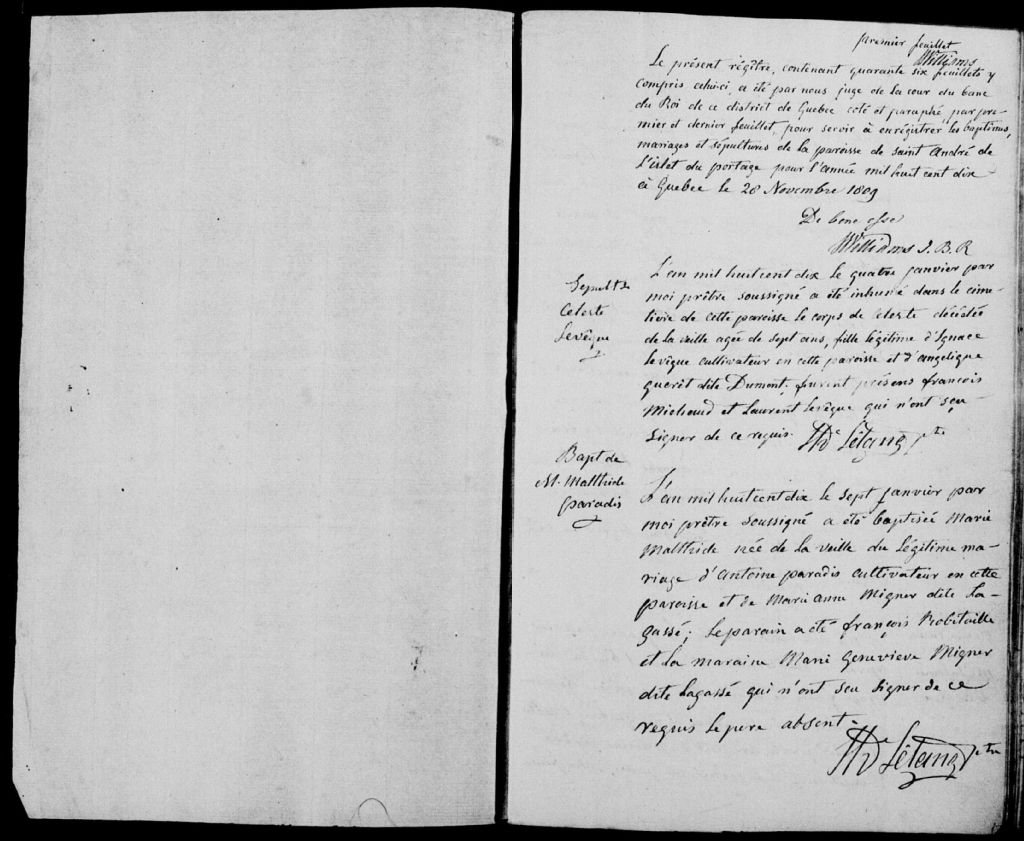 premier feuillet
Williams
Le présent régître, contenant quarante six feuillets y
compris celui-ci, a été par nous juge de la cour du banc
du Roi de ce district de Quebec coté et paraphé, par pre-
mier et dernier feuillet, pour servir à enrégistrer les baptêmes,
mariages et sépultures de la paroisse de saint André de
L'islet du portage pour l'année mil huit cent dix
à Quebec le 28 Novembre 1809
De bene esse
Williams J. B. R
Sepult de
Celeste
Levêque
L'an mil huit cent dix le quatre janvier par
moi prêtre soussigné a été inhumé dans le cime-
tière de cette paroisse le corps de Celeste décédée
de la veille agée de sept ans, fille légitime d'Ignace
levêque cultivateur en cette paroisse et d'angelique
queret dite Dumont; furent présens françois
Michaud et Laurent levêque qui n'ont seu
signer de ce requis.
Létang ptre
Bapt de
M. Matthide
paradis
L'an mil huit cent dix le sept janvier par
moi prêtre soussigné a été baptisée Marie
Matthide née de la veille du légitime ma-
riage d'Antoine paradis cultivateur en cette
paroisse et de Marie anne Migner dite La-
gassé; le parain a été françois Robitaille
et la maraine Marie Genevieve Migner
dite Lagassé qui n'ont seu signer de ce
requis le pere absent.
Létang ptre